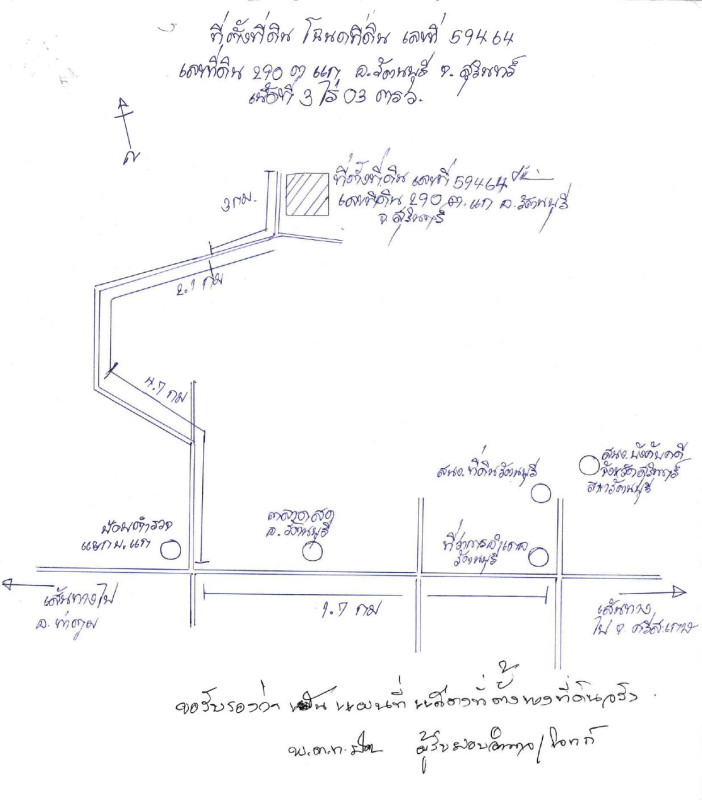 ที่ตั้งที่ดิน โฉนดที่ดิน เลขที่ 59464
เลขที่ดิน 290 ต. แก อ. รัตนบุรี จ. สุรินทร์
เนื้อที่ 3 ไร่ 03 ตรว.
น
3 กม.
ที่ตั้งที่ดิน เลขที่ 59464
เลขที่ดิน 290 ต. แก อ. รัตนบุรี
จ. สุรินทร์
2.1 กม
4.7 กม
สนง. ที่ดินรัตนบุรี
สนง. บังคับคดี
จังหวัดสุรินทร์
สาขารัตนบุรี
ป้อมตำรวจ
แยก บ. แก
ตลาดสด
อ. รัตนบุรี
ที่ว่าการอำเภอ
รัตนบุรี
เส้นทางไป
อ. ท่าตูม
1.7 กม
เส้นทาง
ไป จ. ศรีสะเกษ
ขอรับรองว่า เป็น แผนที่ แสดงที่ตั้งของที่ดินจริง
ผู้รับมอบอำนาจ/โจทก์